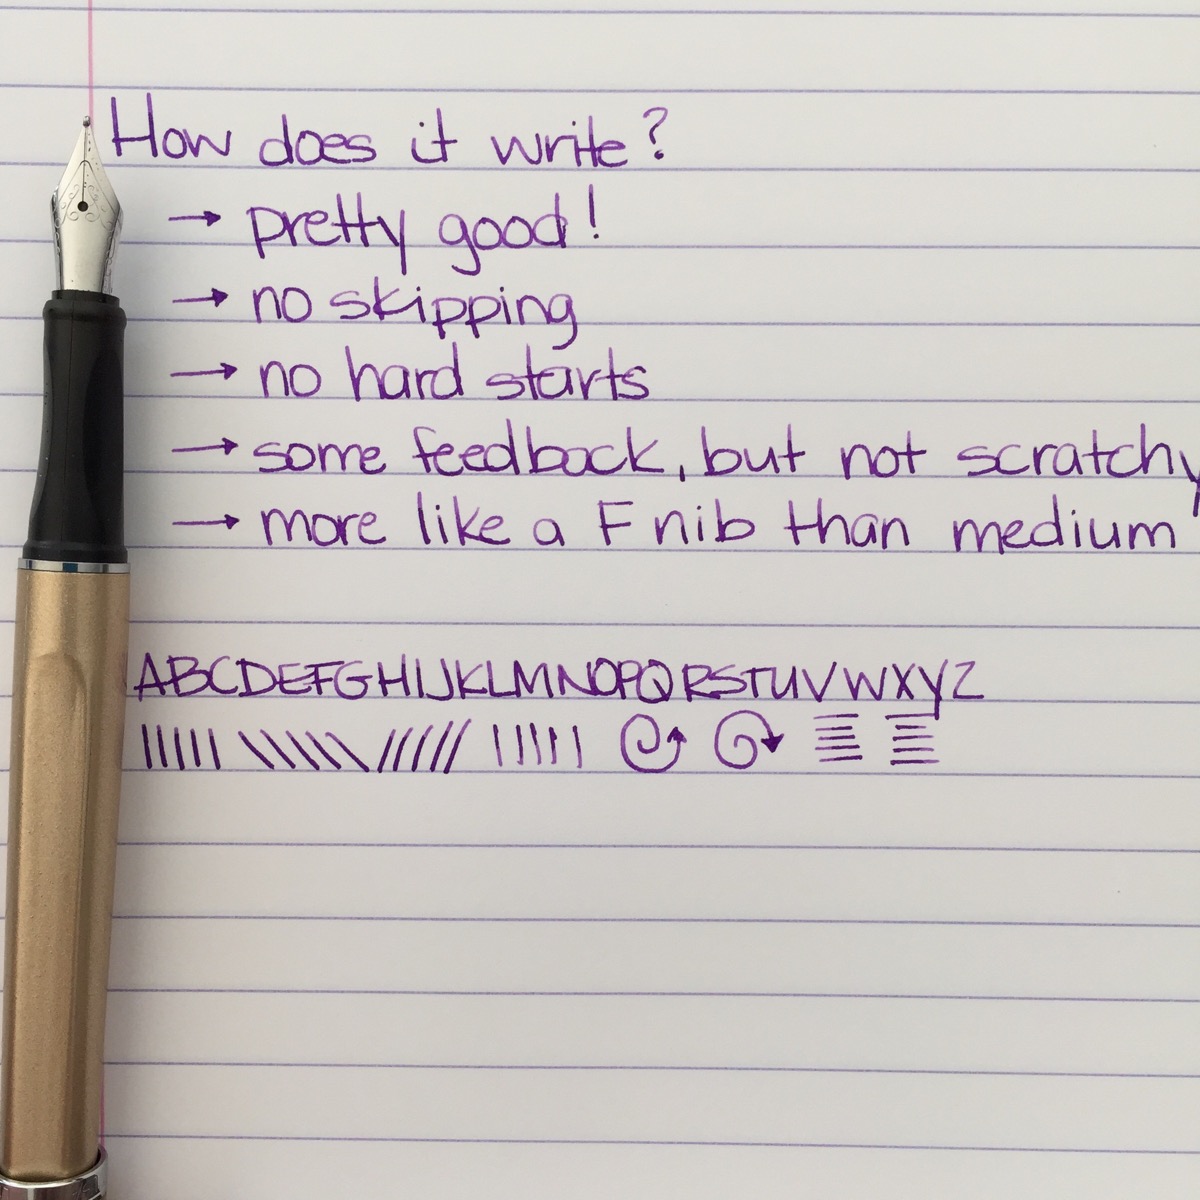 How does it write?
→ pretty good!
→ no skipping
→ no hard starts
→ some feedback, but not scratchy
→ more like a F nib than medium
ABCDEFGHIJKLMNOPQRSTUVWXYZ